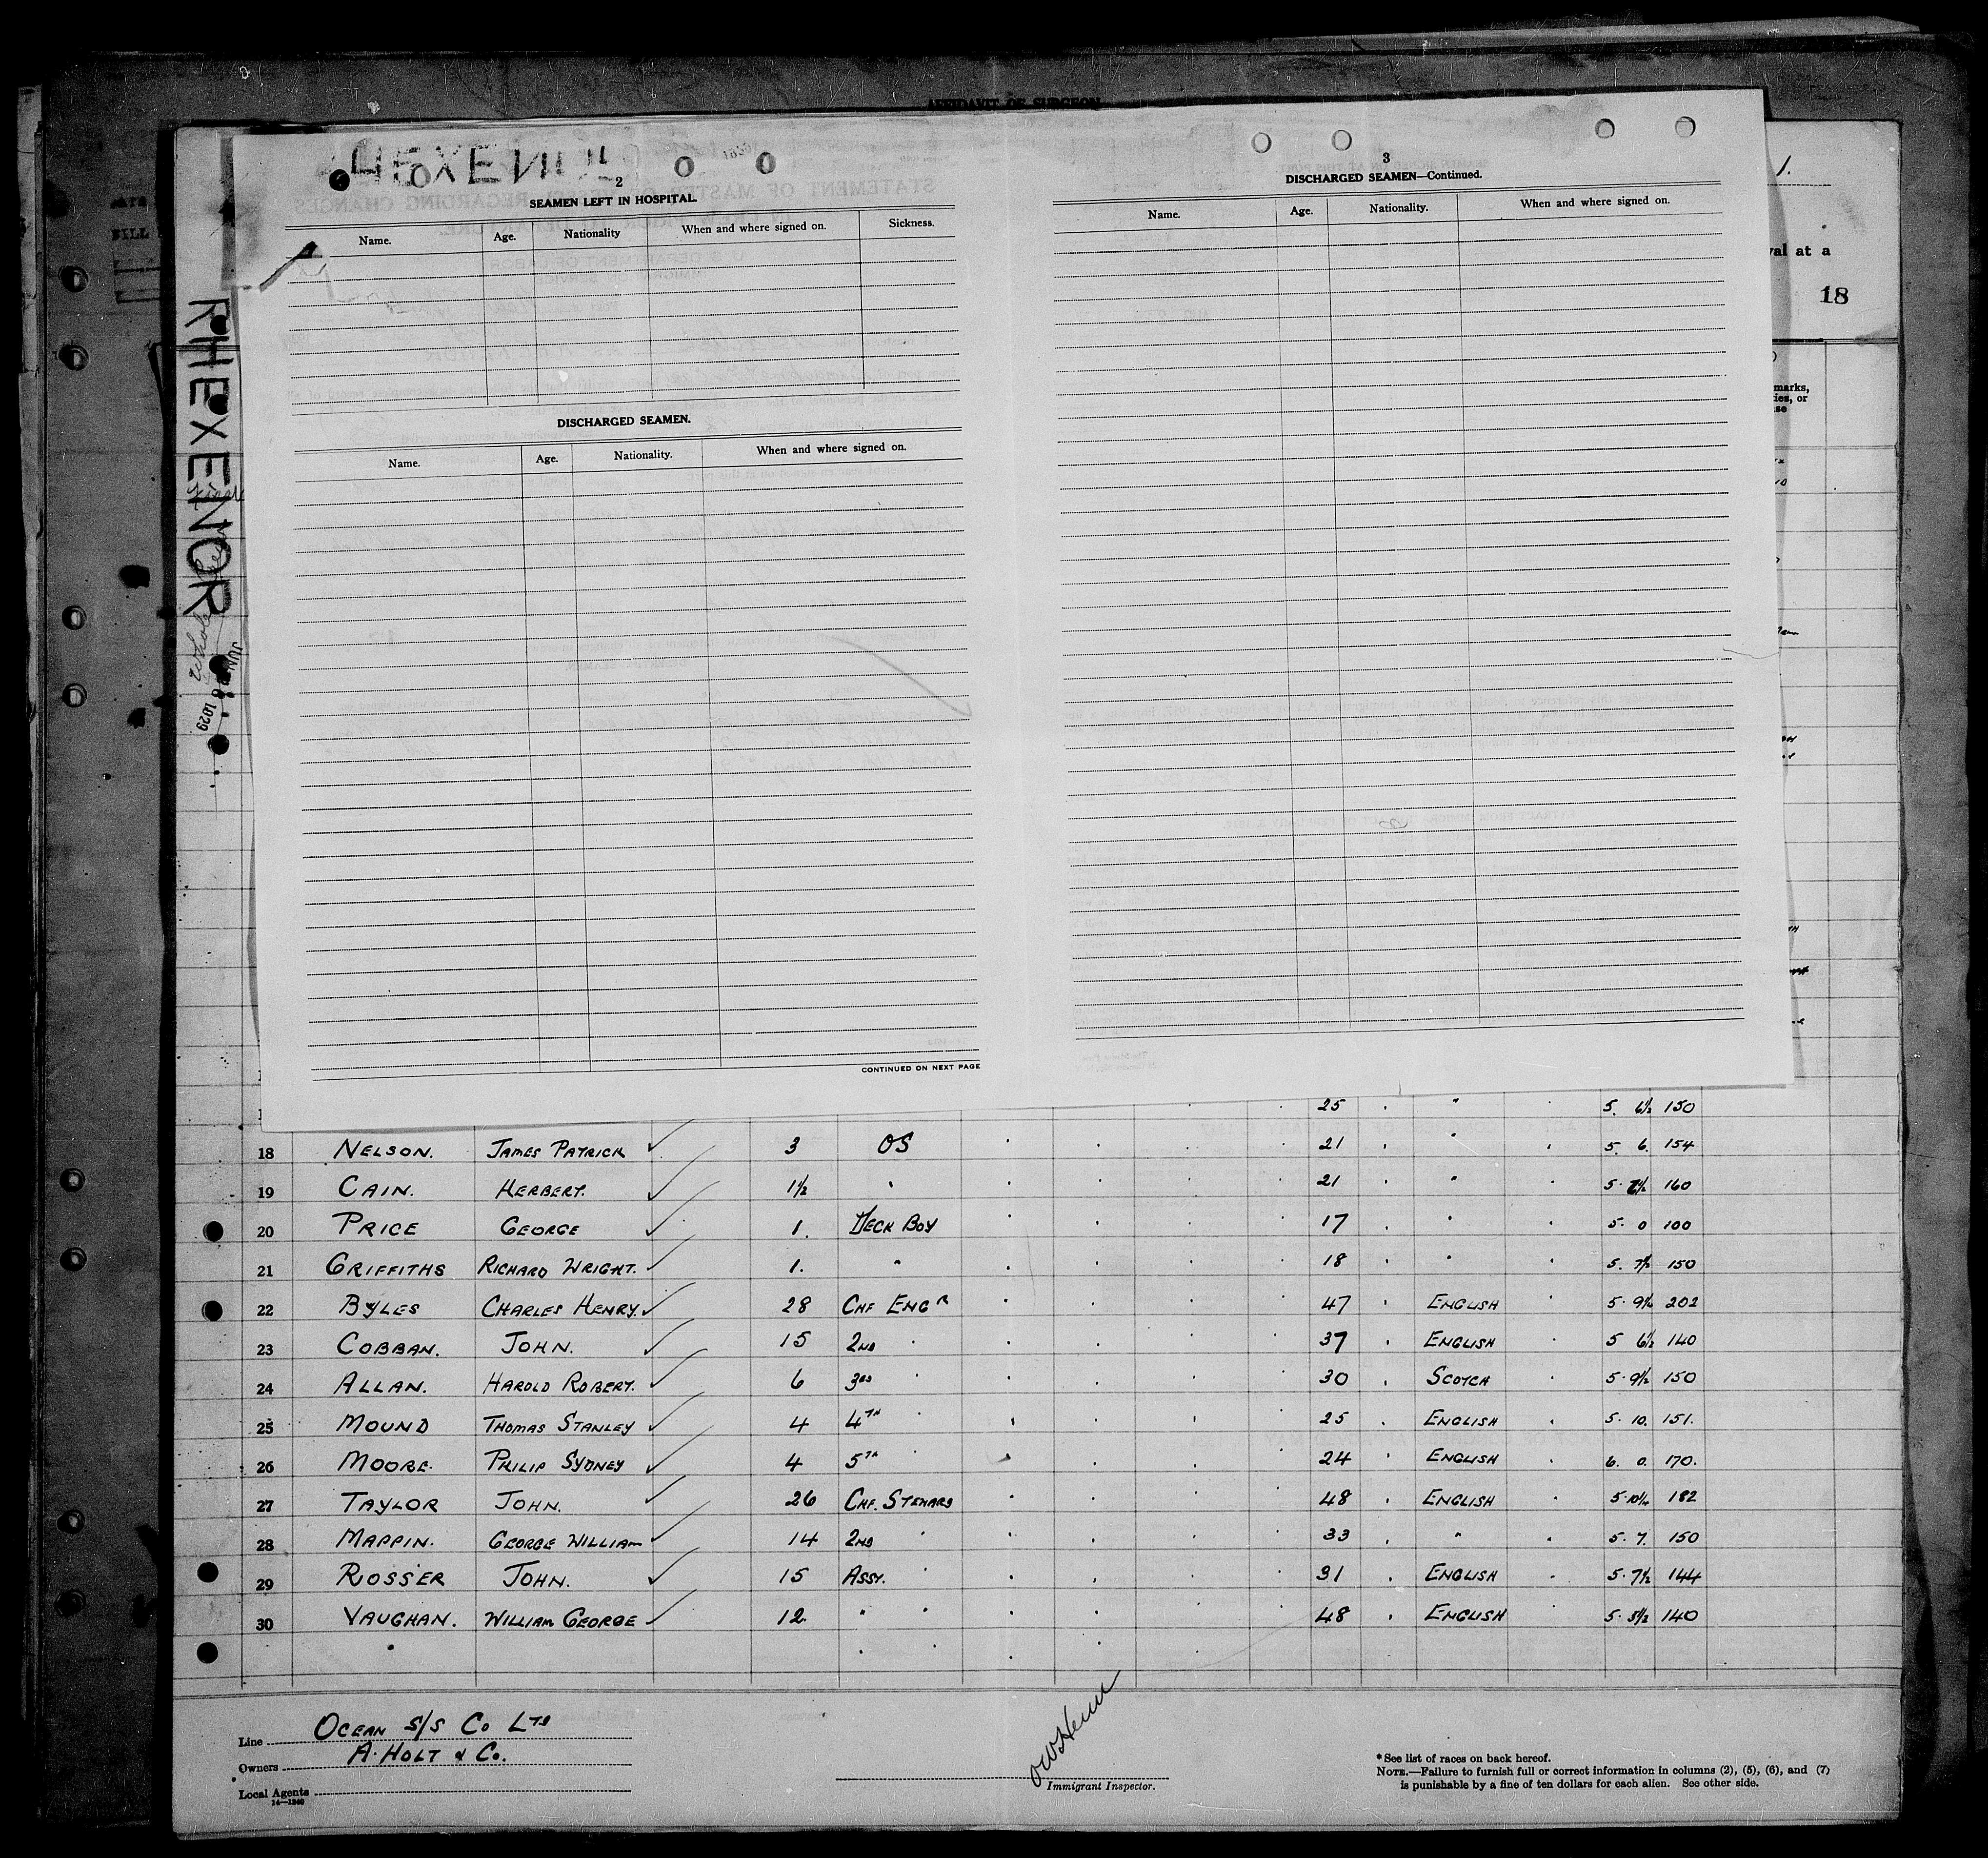 AFFIDAVIT OF SURGEON
2
SEAMEN LEFT IN HOSPITAL.
Name. Age. Nationality When and where signed on. Sickness.
DISCHARGED SEAMEN.
Name. Age. Nationality. When and where signed on.
CONTINUED ON NEXT PAGE
3
DISCHARGED SEAMEN—Continued.
Name. Age. Nationality. When and where signed on.
1.
val at a
18
marks,
ies, or
RHEXENOR
25 " 5. 6½ 150
18 NELSON. JAMES PATRICK ✓ 3 OS 21 " 5. 6. 154
19 CAIN. HERBERT. ✓ 1½ " 21 " 160
20 PRICE GEORGE ✓ 1. DECK BOY 17 " 5. 0 100
21 GRIFFITHS RICHARD WRIGHT. ✓ 1. " 18 " 150
22 BYLES CHARLES HENRY. ✓ 28 CHF ENGR 47 ENGLISH 202
23 COBBAN. JOHN. ✓ 15 2ND " 37 ENGLISH 5 6½ 140
24 ALLAN. HAROLD ROBERT. ✓ 6 3RD " 30 SCOTCH 5. 9½ 150
25 MOUND THOMAS STANLEY ✓ 4 4TH " 25 ENGLISH 5. 10. 151.
26 MOORE. PHILIP SYDNEY ✓ 4 5TH " 24 ENGLISH 6. 0. 170.
27 TAYLOR JOHN. ✓ 26 CHF. STEWARD 48 ENGLISH 182
28 MAPPIN. GEORGE WILLIAM ✓ 14 2ND " 33 " 5. 7. 150
29 ROSSER JOHN. ✓ 15 ASST. " 31 ENGLISH 5. 7½ 144
30 VAUGHAN. WILLIAM GEORGE ✓ 12 " " 48 ENGLISH 5. 5½ 140
Line OCEAN S/S Co LTD
Owners A. HOLT & Co.
Local Agents
14—1240
Immigrant Inspector.
* See list of races on back hereof.
NOTE.—Failure to furnish full or correct information in columns (2), (5), (6), and (7)
is punishable by a fine of ten dollars for each alien. See other side.